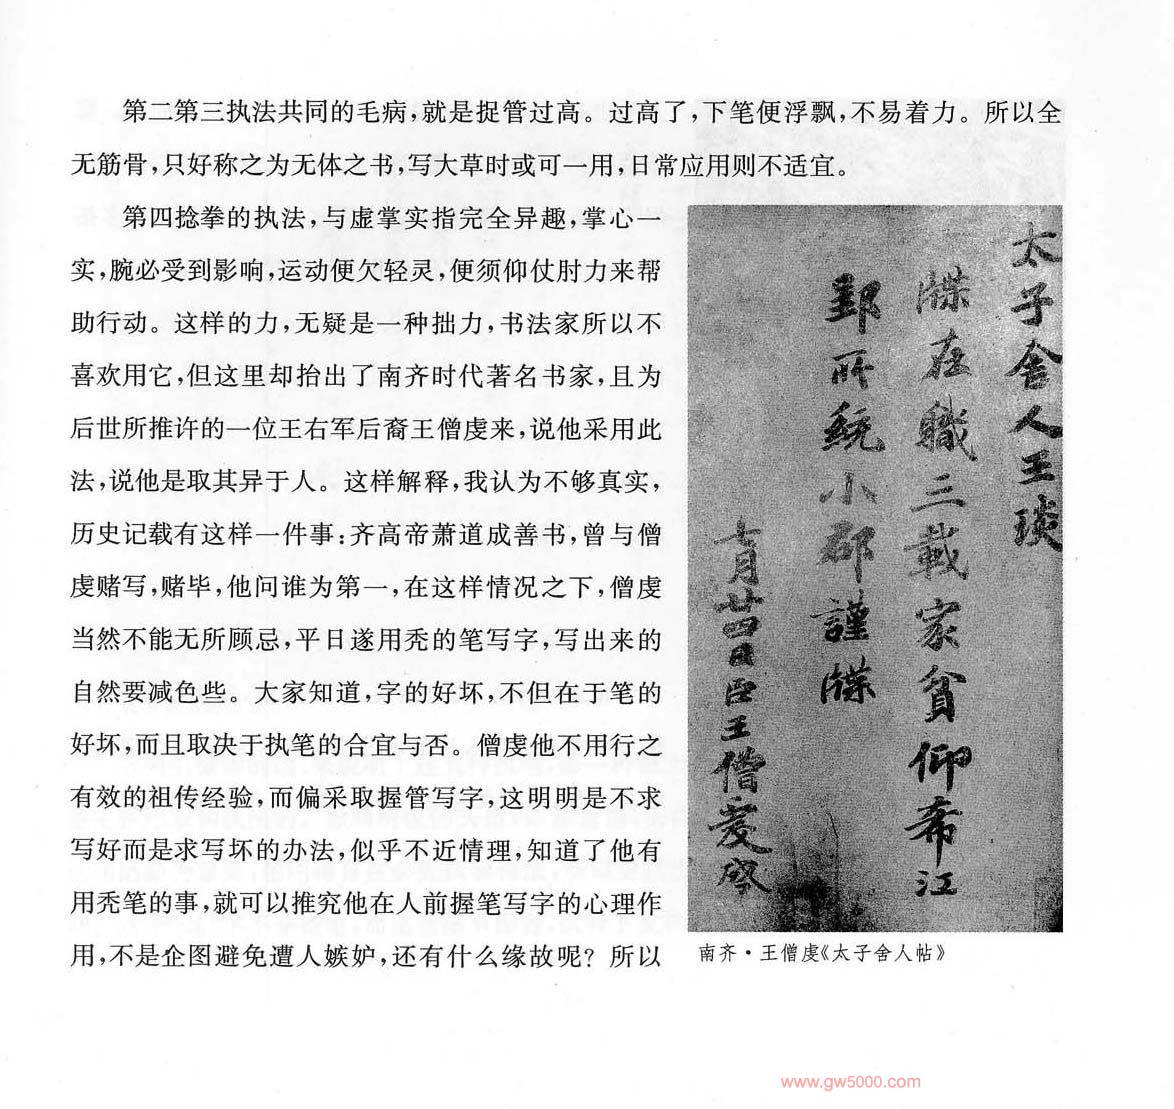 第二第三执法共同的毛病，就是捉管过高。过高了，下笔便浮飘，不易着力。所以全
无筋骨，只好称之为无体之书，写大草时或可一用，日常应用则不适宜。
第四捻拳的执法，与虚掌实指完全异趣，掌心一
实，腕必受到影响，运动便欠轻灵，便须仰仗肘力来帮
助行动。这样的力，无疑是一种拙力，书法家所以不
喜欢用它，但这里却抬出了南齐时代著名书家，且为
后世所推许的一位王右军后裔王僧虔来，说他采用此
法，说他是取其异于人。这样解释，我认为不够真实，
历史记载有这样一件事：齐高帝萧道成善书，曾与僧
虔赌写，赌毕，他问谁为第一，在这样情况之下，僧虔
当然不能无所顾忌，平日遂用秃的笔写字，写出来的
自然要减色些。大家知道，字的好坏，不但在于笔的
好坏，而且取决于执笔的合宜与否。僧虔他不用行之
有效的祖传经验，而偏采取握管写字，这明明是不求
写好而是求写坏的办法，似乎不近情理，知道了他有
用秃笔的事，就可以推究他在人前握笔写字的心理作
用，不是企图避免遭人嫉妒，还有什么缘故呢？所以
太子舍人王琰
牒在職三載家貧仰希江
郢所統小郡謹牒
七月廿四日臣王僧虔啓
南齐·王僧虔《太子舍人帖》
www.gw5000.com